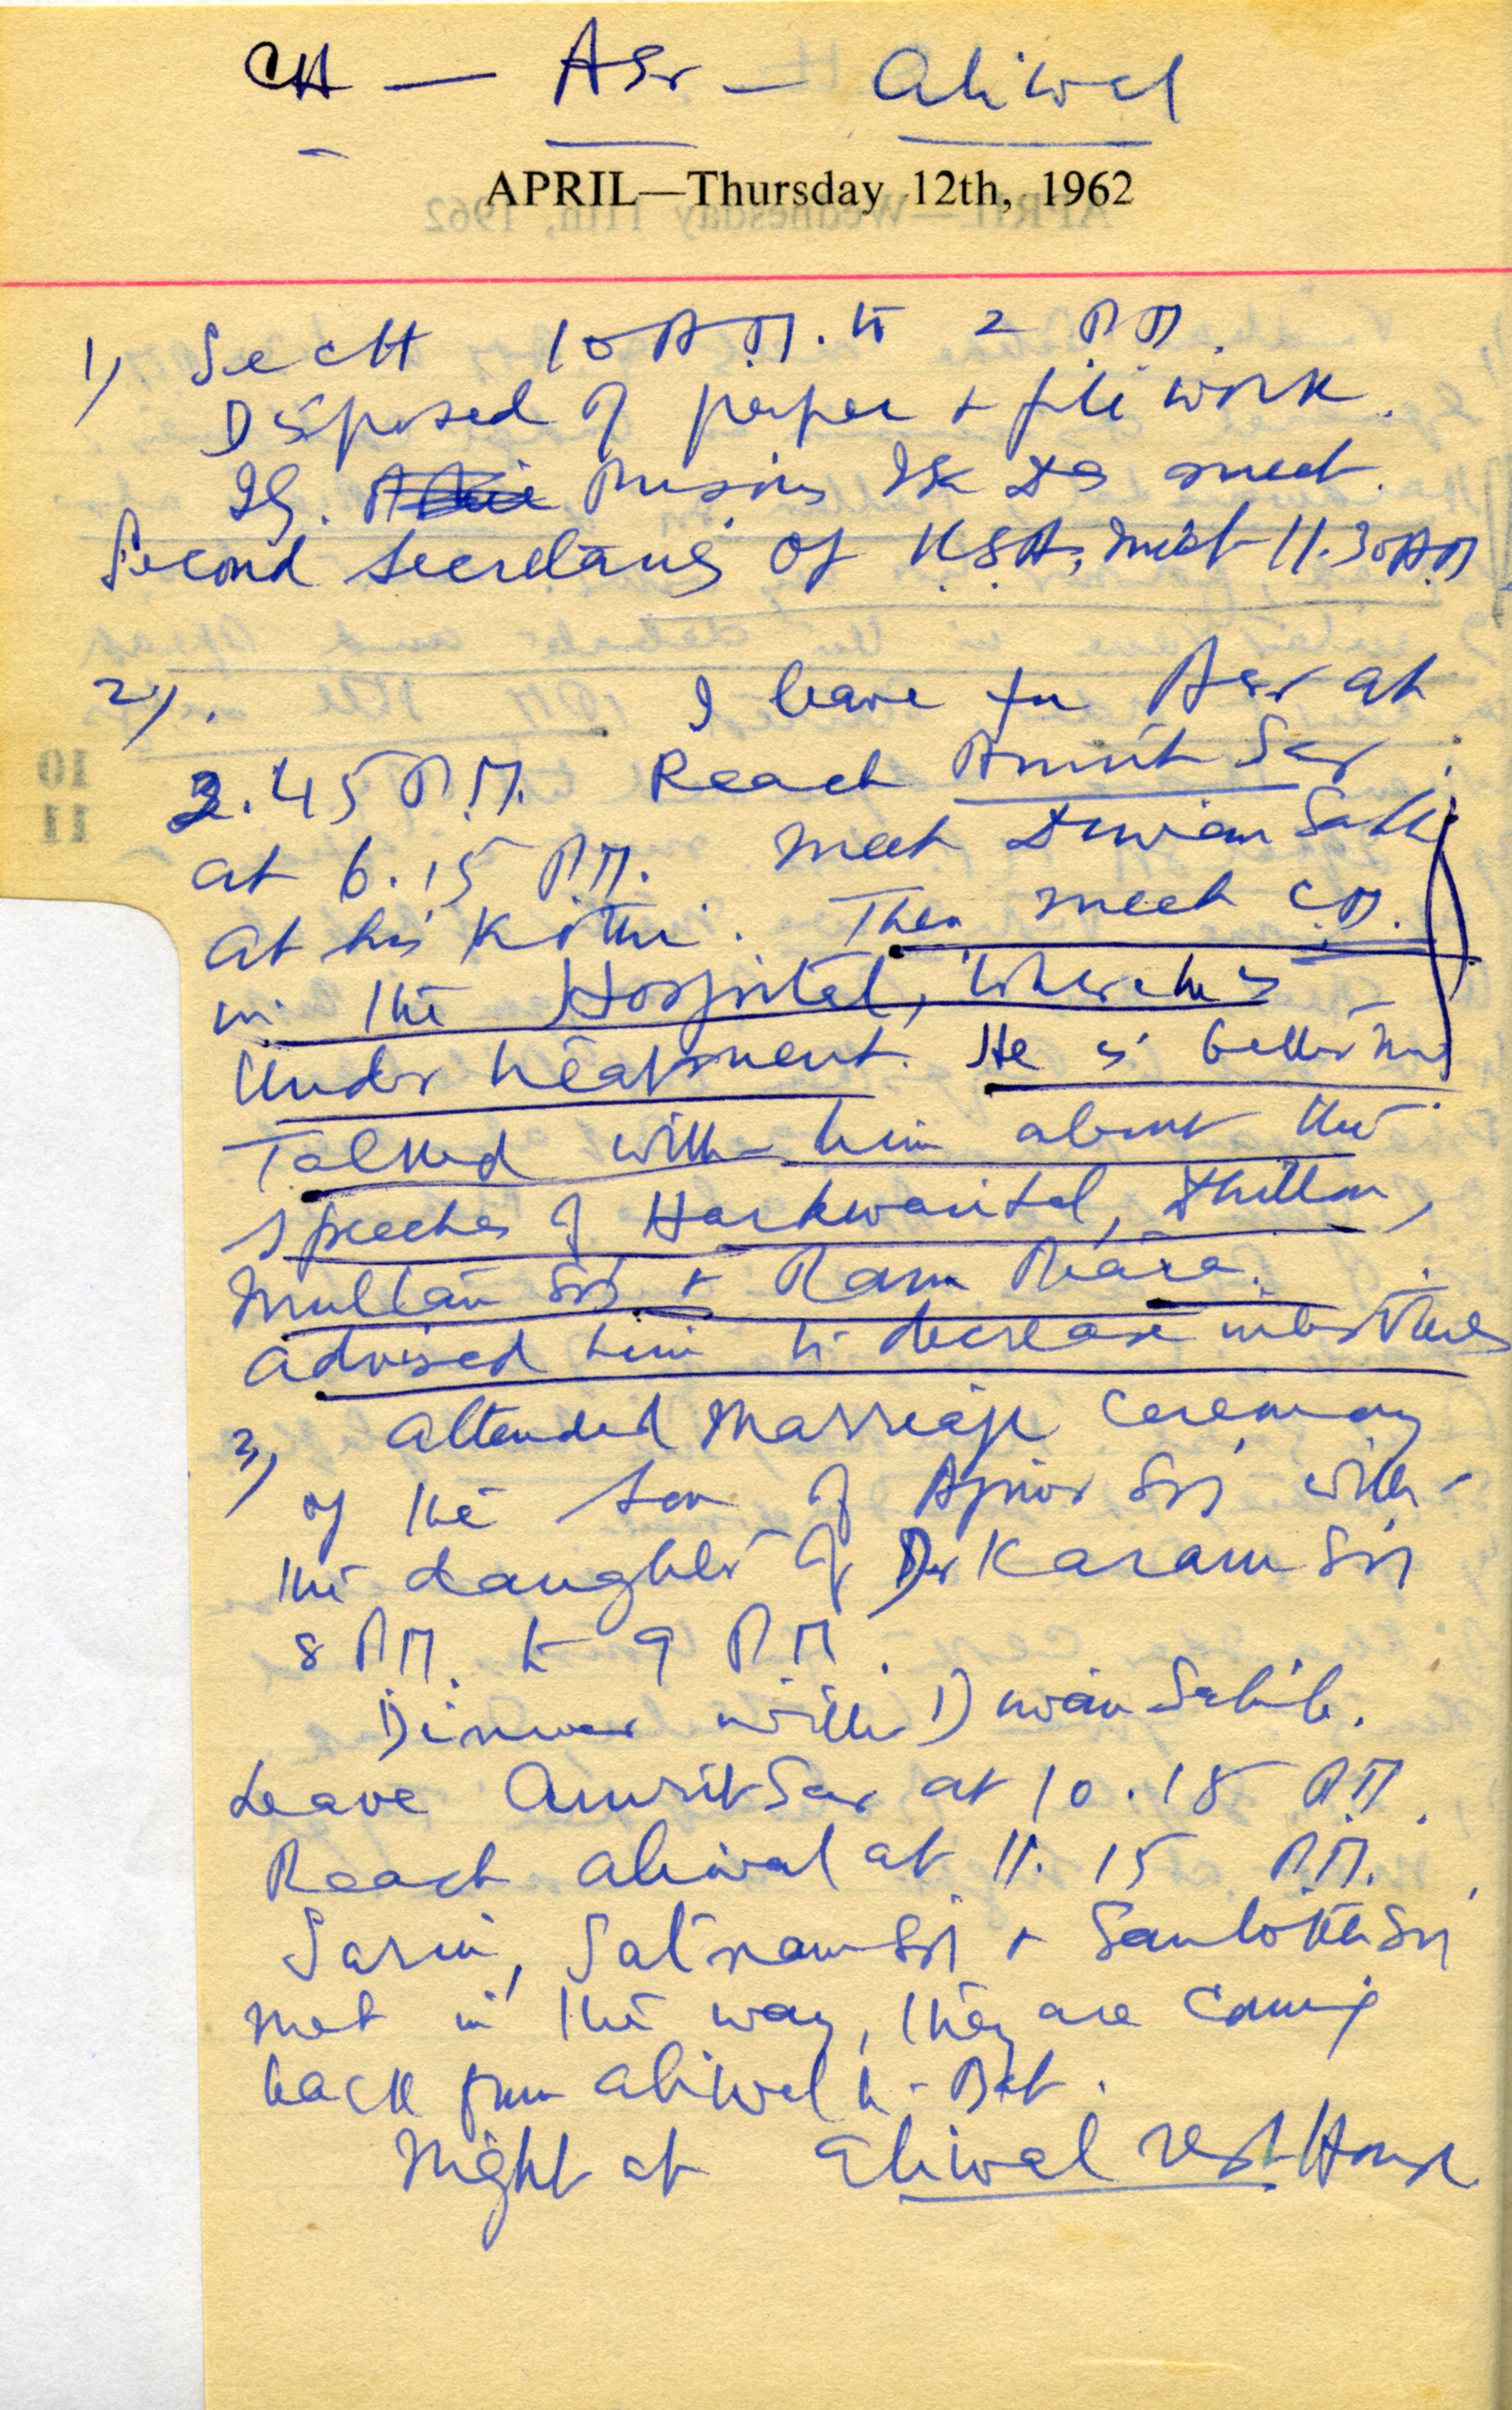 CH — ASr — Aliwal
APRIL—Thursday 12th, 1962
1) Sectt 10 A.M. to 2 P.M.
Disposed of paper + file work.
IG. Prisons meet.
Second Secretary of U.S.A. meet 11.30 A.M
2). I leave for Asr at
2.45 P.M. Reach Amrit Sar
at 6.15 P.M. meet Diwan Sahib
at his Kothi. Then meet C.M.
in the Hospital, where he is
Under treatment. He is better now.
Talked with him about the
speeches of Harkwantal, Dhillon,
Multan Sing + Ram Piara.
advised him to decrease
3) attended Marriage Ceremony
of the son of Sing with
the daughter of Dr Karam Sing
8 P.M. to 9 P.M.
Dinner with Diwan Sahib.
Leave Amrit Sar at 10.15 P.M.
Reach Aliwal at 11.15 P.M.
Sarin, Satnam Sing + Santokh Sing
met in the way, they are coming
back from Aliwal to
Night at Aliwal rest House